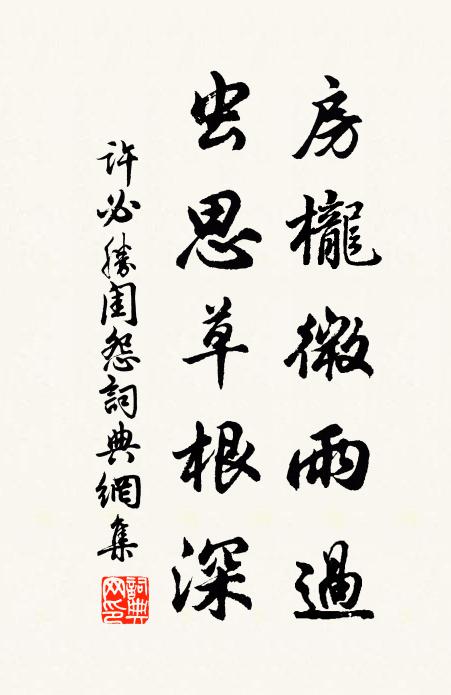 房櫳微雨過
虫思草根深
許必勝閨怨詞典網集
詞典网印